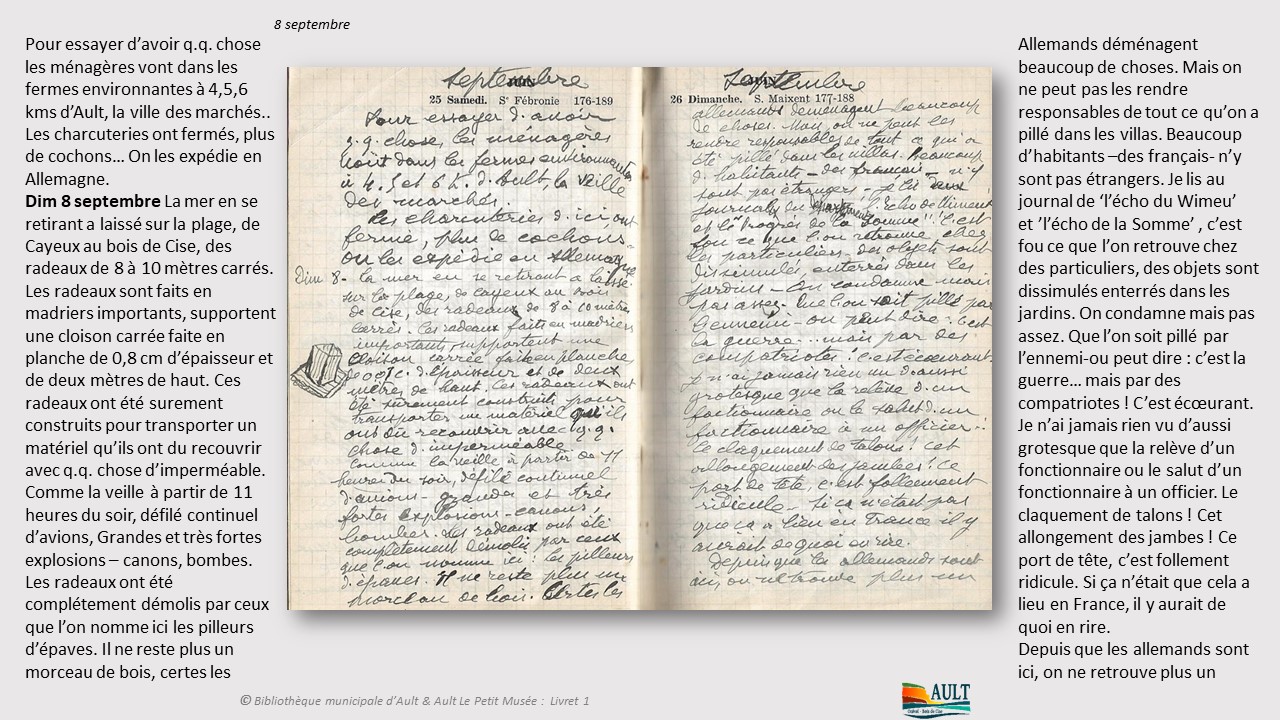 8 septembre
Pour essayer d’avoir q.q. chose
les ménagères vont dans les
fermes environnantes à 4,5,6
kms d’Ault, la ville des marchés..
Les charcuteries ont fermés, plus
de cochons… On les expédie en
Allemagne.
Dim 8 septembre La mer en se
retirant a laissé sur la plage, de
Cayeux au bois de Cise, des
radeaux de 8 à 10 mètres carrés.
Les radeaux sont faits en
madriers importants, supportent
une cloison carrée faite en
planche de 0,8 cm d’épaisseur et
de deux mètres de haut. Ces
radeaux ont été surement
construits pour transporter un
matériel qu’ils ont du recouvrir
avec q.q. chose d’imperméable.
Comme la veille à partir de 11
heures du soir, défilé continuel
d’avions, Grandes et très fortes
explosions – canons, bombes.
Les radeaux ont été
complétement démolis par ceux
que l’on nomme ici les pilleurs
d’épaves. Il ne reste plus un
morceau de bois, certes les
septembre
25 Samedi. Sᵉ Fébronie 176-189
Pour essayer d'avoir
q.q. chose, les ménagères
vont dans les fermes environnantes
à 4. 5 et 6 K. d'Ault, la veille
des marchés.
Les charcuteries d'ici ont
fermé, plus de cochons
on les expédie en Allemagne
Dim 8 - la mer en se retirant a laissé
sur la plage, de Cayeux au bois
de Cise, des radeaux de 8 à 10 mètres
carrés. Ces radeaux faits en madriers
importants, supportent une
cloison carrée faite en planche
d'épaisseur et de deux
mètres de haut. Ces radeaux ont
été surement construits pour
transporter un matériel qu'ils
ont du recouvrir avec q.q.
chose d'imperméable
Comme la veille à partir de 11
heures du soir, défilé continuel
d'avions - grandes et très
fortes explosions - canons,
bombes. Les radeaux ont été
complètement démolis par ceux
que l'on nomme ici : les pilleurs
d'épaves. Il ne reste plus un
morceau de bois. Certes les
septembre
26 Dimanche. S. Maixent 177-188
allemands déménagent beaucoup
de choses. Mais on ne peut les
rendre responsables de tout ce qui a
été pillé dans les villas. Beaucoup
d'habitants - des français - n'y
sont pas étrangers - je lis deux
journaux du l'écho du Vimeu
et le Progrès de la Somme". C'est
fou ce que l'on retrouve chez
les particuliers, des objets sont
dissimulés, enterrés dans les
jardins - On condamne mais
pas assez. Que l'on soit pillé par
l'ennemi - on peut dire : c'est
la guerre... mais par des
compatriotes ! c'est écœurant.
Je n'ai jamais rien vu d'aussi
grotesque que la relève d'un
factionnaire ou le salut d'un
factionnaire à un officier..
Le claquement de talons ! Cet
allongement des jambes ! Ce
port de tête c'est follement
ridicule - si ça n'était pas
que ça a lieu en France il y
aurait de quoi en rire.
Depuis que les allemands sont
ici, on ne retrouve plus un
Allemands déménagent
beaucoup de choses. Mais on
ne peut pas les rendre
responsables de tout ce qu’on a
pillé dans les villas. Beaucoup
d’habitants –des français- n’y
sont pas étrangers. Je lis au
journal de ‘l’écho du Wimeu’
et ’l’écho de la Somme’ , c’est
fou ce que l’on retrouve chez
des particuliers, des objets sont
dissimulés enterrés dans les
jardins. On condamne mais pas
assez. Que l’on soit pillé par
l’ennemi-ou peut dire : c’est la
guerre… mais par des
compatriotes ! C’est écœurant.
Je n’ai jamais rien vu d’aussi
grotesque que la relève d’un
fonctionnaire ou le salut d’un
fonctionnaire à un officier. Le
claquement de talons ! Cet
allongement des jambes ! Ce
port de tête, c’est follement
ridicule. Si ça n’était que cela a
lieu en France, il y aurait de
quoi en rire.
Depuis que les allemands sont
ici, on ne retrouve plus un
© Bibliothèque municipale d’Ault & Ault Le Petit Musée : Livret 1
AULT
Onival - Bois de Cise